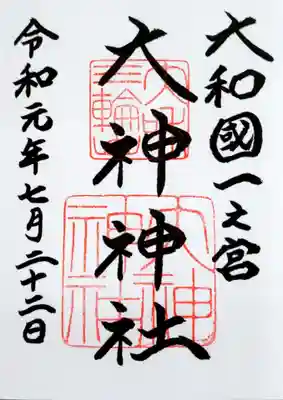 大和國一之宮
大神神社
令和元年七月二十二日
三輪
大神
神社